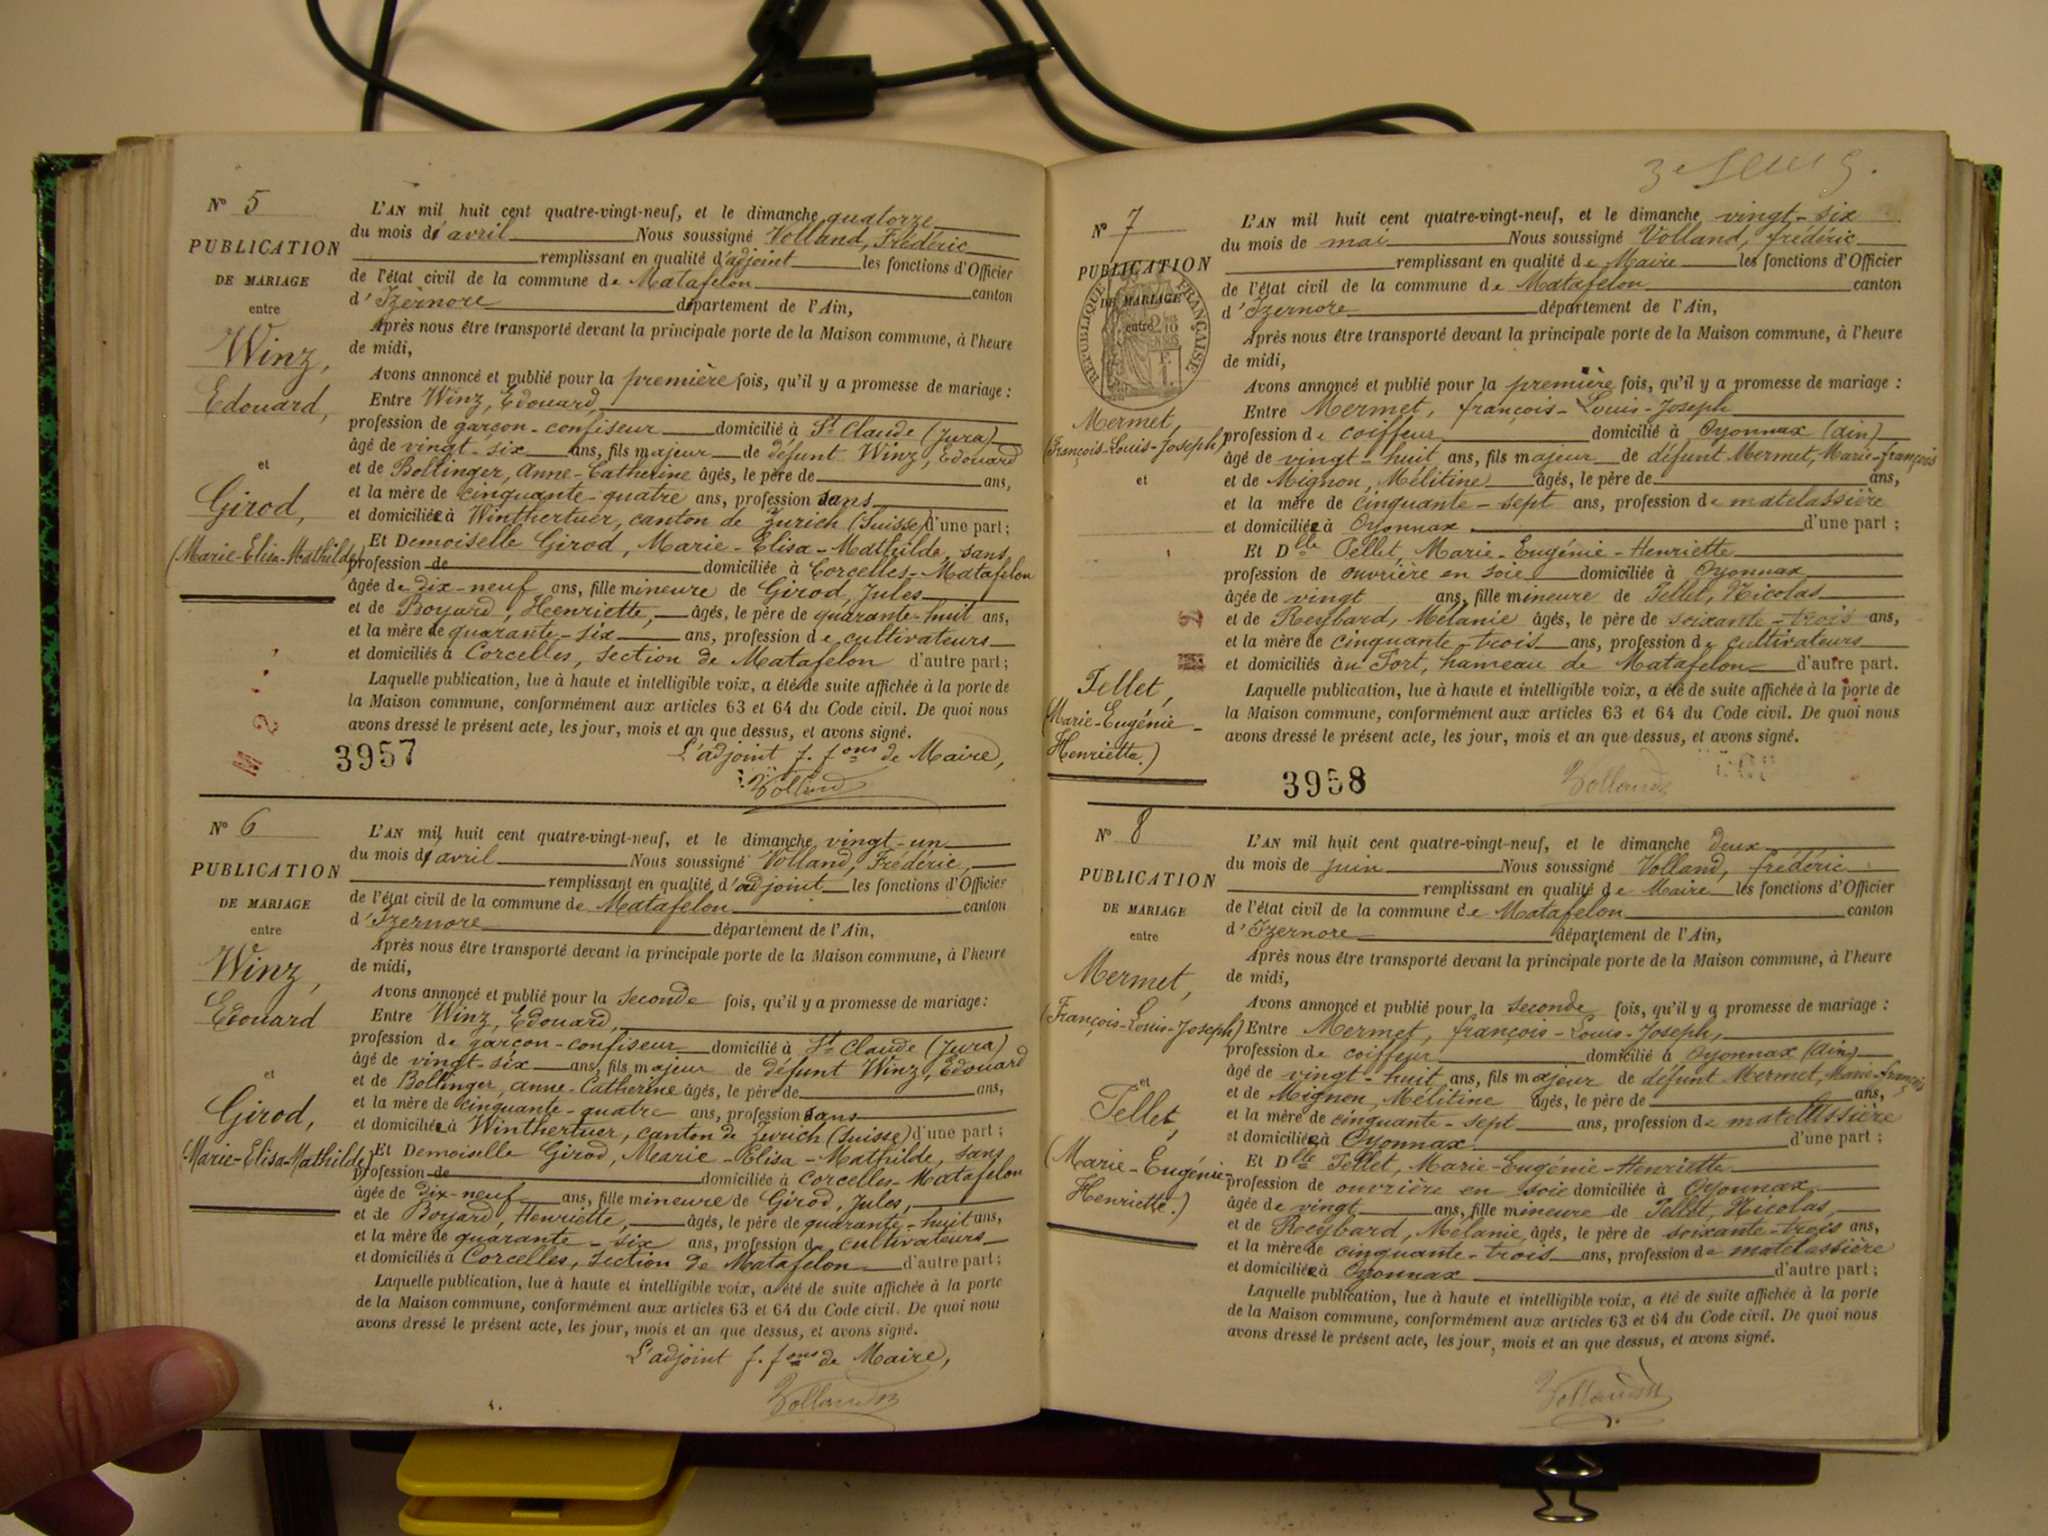 N° 5
PUBLICATION
DE MARIAGE
entre
Winz,
Edouard,
et
Girod,
(Marie-Elisa-Mathilde)
L'AN mil huit cent quatre-vingt-neuf, et le dimanche quatorze
du mois d'avril Nous soussigné Volland, Frédéric
remplissant en qualité d'adjoint les fonctions d'Officier
de l'état civil de la commune de Matafelon canton
d'Izernore département de l'Ain,
Après nous être transporté devant la principale porte de la Maison commune, à l'heure
de midi,
Avons annoncé et publié pour la première fois, qu'il y a promesse de mariage :
Entre Winz, Edouard,
profession de garçon-confiseur domicilié à St Claude (Jura)
âgé de vingt-six ans, fils majeur de défunt Winz, Edouard
et de Bollinger, Anne-Catherine âgés, le père de ans,
et la mère de cinquante-quatre ans, profession sans
et domiciliée à Winthertuer, canton de Zurich (Suisse) d'une part ;
Et Demoiselle Girod, Marie-Elisa-Mathilde, sans
profession de domiciliée à Corcelles-Matafelon
âgée de dix-neuf ans, fille mineure de Girod, Jules
et de Boyard, Henriette, âgés, le père de quarante-huit ans,
et la mère de quarante-six ans, profession de cultivateurs
et domiciliés à Corcelles, section de Matafelon d'autre part ;
Laquelle publication, lue à haute et intelligible voix, a été de suite affichée à la porte de
la Maison commune, conformément aux articles 63 et 64 du Code civil. De quoi nous
avons dressé le présent acte, les jour, mois et an que dessus, et avons signé.
3957
L'adjoint f. fons de Maire,
Volland
N° 6
PUBLICATION
DE MARIAGE
entre
Winz,
Edouard
et
Girod,
(Marie-Elisa-Mathilde)
L'AN mil huit cent quatre-vingt-neuf, et le dimanche vingt-un
du mois d'avril Nous soussigné Volland, Frédéric,
remplissant en qualité d'adjoint les fonctions d'Officier
de l'état civil de la commune de Matafelon canton
d'Izernore département de l'Ain,
Après nous être transporté devant la principale porte de la Maison commune, à l'heure
de midi,
Avons annoncé et publié pour la seconde fois, qu'il y a promesse de mariage :
Entre Winz, Edouard,
profession de garçon-confiseur domicilié à St Claude (Jura)
âgé de vingt-six ans, fils majeur de défunt Winz, Edouard
et de Bollinger, Anne-Catherine âgés, le père de ans,
et la mère de cinquante-quatre ans, profession sans
et domiciliée à Winthertuer, canton de Zurich (Suisse) d'une part ;
Et Demoiselle Girod, Marie-Elisa-Mathilde, sans
profession de domiciliée à Corcelles-Matafelon
âgée de dix-neuf ans, fille mineure de Girod, Jules,
et de Boyard, Henriette, âgés, le père de quarante-huit ans,
et la mère de quarante-six ans, profession de cultivateurs
et domiciliés à Corcelles, section de Matafelon d'autre part ;
Laquelle publication, lue à haute et intelligible voix, a été de suite affichée à la porte
de la Maison commune, conformément aux articles 63 et 64 du Code civil. De quoi nous
avons dressé le présent acte, les jour, mois et an que dessus, et avons signé.
L'adjoint f. fons de Maire,
Volland
N° 7
PUBLICATION
DE MARIAGE
entre
RÉPUBLIQUE FRANÇAISE
Mermet,
(François-Louis-Joseph)
et
Tellet,
(Marie-Eugénie-
Henriette.)
L'AN mil huit cent quatre-vingt-neuf, et le dimanche vingt-six
du mois de mai Nous soussigné Volland, frédéric
remplissant en qualité de Maire les fonctions d'Officier
de l'état civil de la commune de Matafelon canton
d'Izernore département de l'Ain,
Après nous être transporté devant la principale porte de la Maison commune, à l'heure
de midi,
Avons annoncé et publié pour la première fois, qu'il y a promesse de mariage :
Entre Mermet, françois-Louis-Joseph
profession de coiffeur domicilié à Oyonnax (ain)
âgé de vingt-huit ans, fils majeur de défunt Mermet, Marie-françois
et de Mignon, Mélitine âgés, le père de ans,
et la mère de cinquante-sept ans, profession de matelassière
et domiciliée à Oyonnax d'une part ;
Et Dlle Tellet, Marie-Eugénie-Henriette
profession de ouvrière en soie domiciliée à Oyonnax
âgée de vingt ans, fille mineure de Tellet, Nicolas
et de Reybard, Mélanie âgés, le père de soixante-trois ans,
et la mère de cinquante-trois ans, profession de cultivateurs
et domiciliés àu Port, hameau de Matafelon d'autre part.
Laquelle publication, lue à haute et intelligible voix, a été de suite affichée à la porte de
la Maison commune, conformément aux articles 63 et 64 du Code civil. De quoi nous
avons dressé le présent acte, les jour, mois et an que dessus, et avons signé.
3958
Volland
N° 8
PUBLICATION
DE MARIAGE
entre
Mermet,
(François-Louis-Joseph)
et
Tellet,
(Marie-Eugénie-
Henriette.)
L'AN mil huit cent quatre-vingt-neuf, et le dimanche deux
du mois de juin Nous soussigné Volland, frédéric
remplissant en qualité de Maire les fonctions d'Officier
de l'état civil de la commune de Matafelon canton
d'Izernore département de l'Ain,
Après nous être transporté devant la principale porte de la Maison commune, à l'heure
de midi,
Avons annoncé et publié pour la seconde fois, qu'il y a promesse de mariage :
Entre Mermet, françois-Louis-Joseph,
profession de coiffeur domicilié à Oyonnax (ain)
âgé de vingt-huit ans, fils majeur de défunt Mermet, Marie-françois
et de Mignon, Mélitine âgés, le père de ans,
et la mère de cinquante-sept ans, profession de matelassière
et domiciliée à Oyonnax d'une part ;
Et Dlle Tellet, Marie-Eugénie-Henriette
profession de ouvrière en soie domiciliée à Oyonnax
âgée de vingt ans, fille mineure de Tellet, Nicolas,
et de Reybard, Mélanie, âgés, le père de soixante-trois ans,
et la mère de cinquante-trois ans, profession de matelassière
et domiciliée à Oyonnax d'autre part ;
Laquelle publication, lue à haute et intelligible voix, a été de suite affichée à la porte
de la Maison commune, conformément aux articles 63 et 64 du Code civil. De quoi nous
avons dressé le présent acte, les jour, mois et an que dessus, et avons signé.
Volland